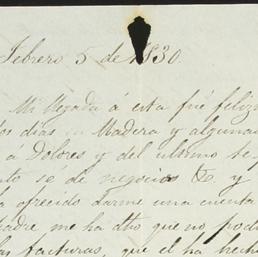 Febrero 5 de 1830.
Mi llegada á esta fué feliz
dos dias en Madera y algunas
á Dolores y del ultimo te
sé de negocios &c y
ofrecido darme una cuenta
madre me ha dho que no pod
las facturas, que el ha hecho